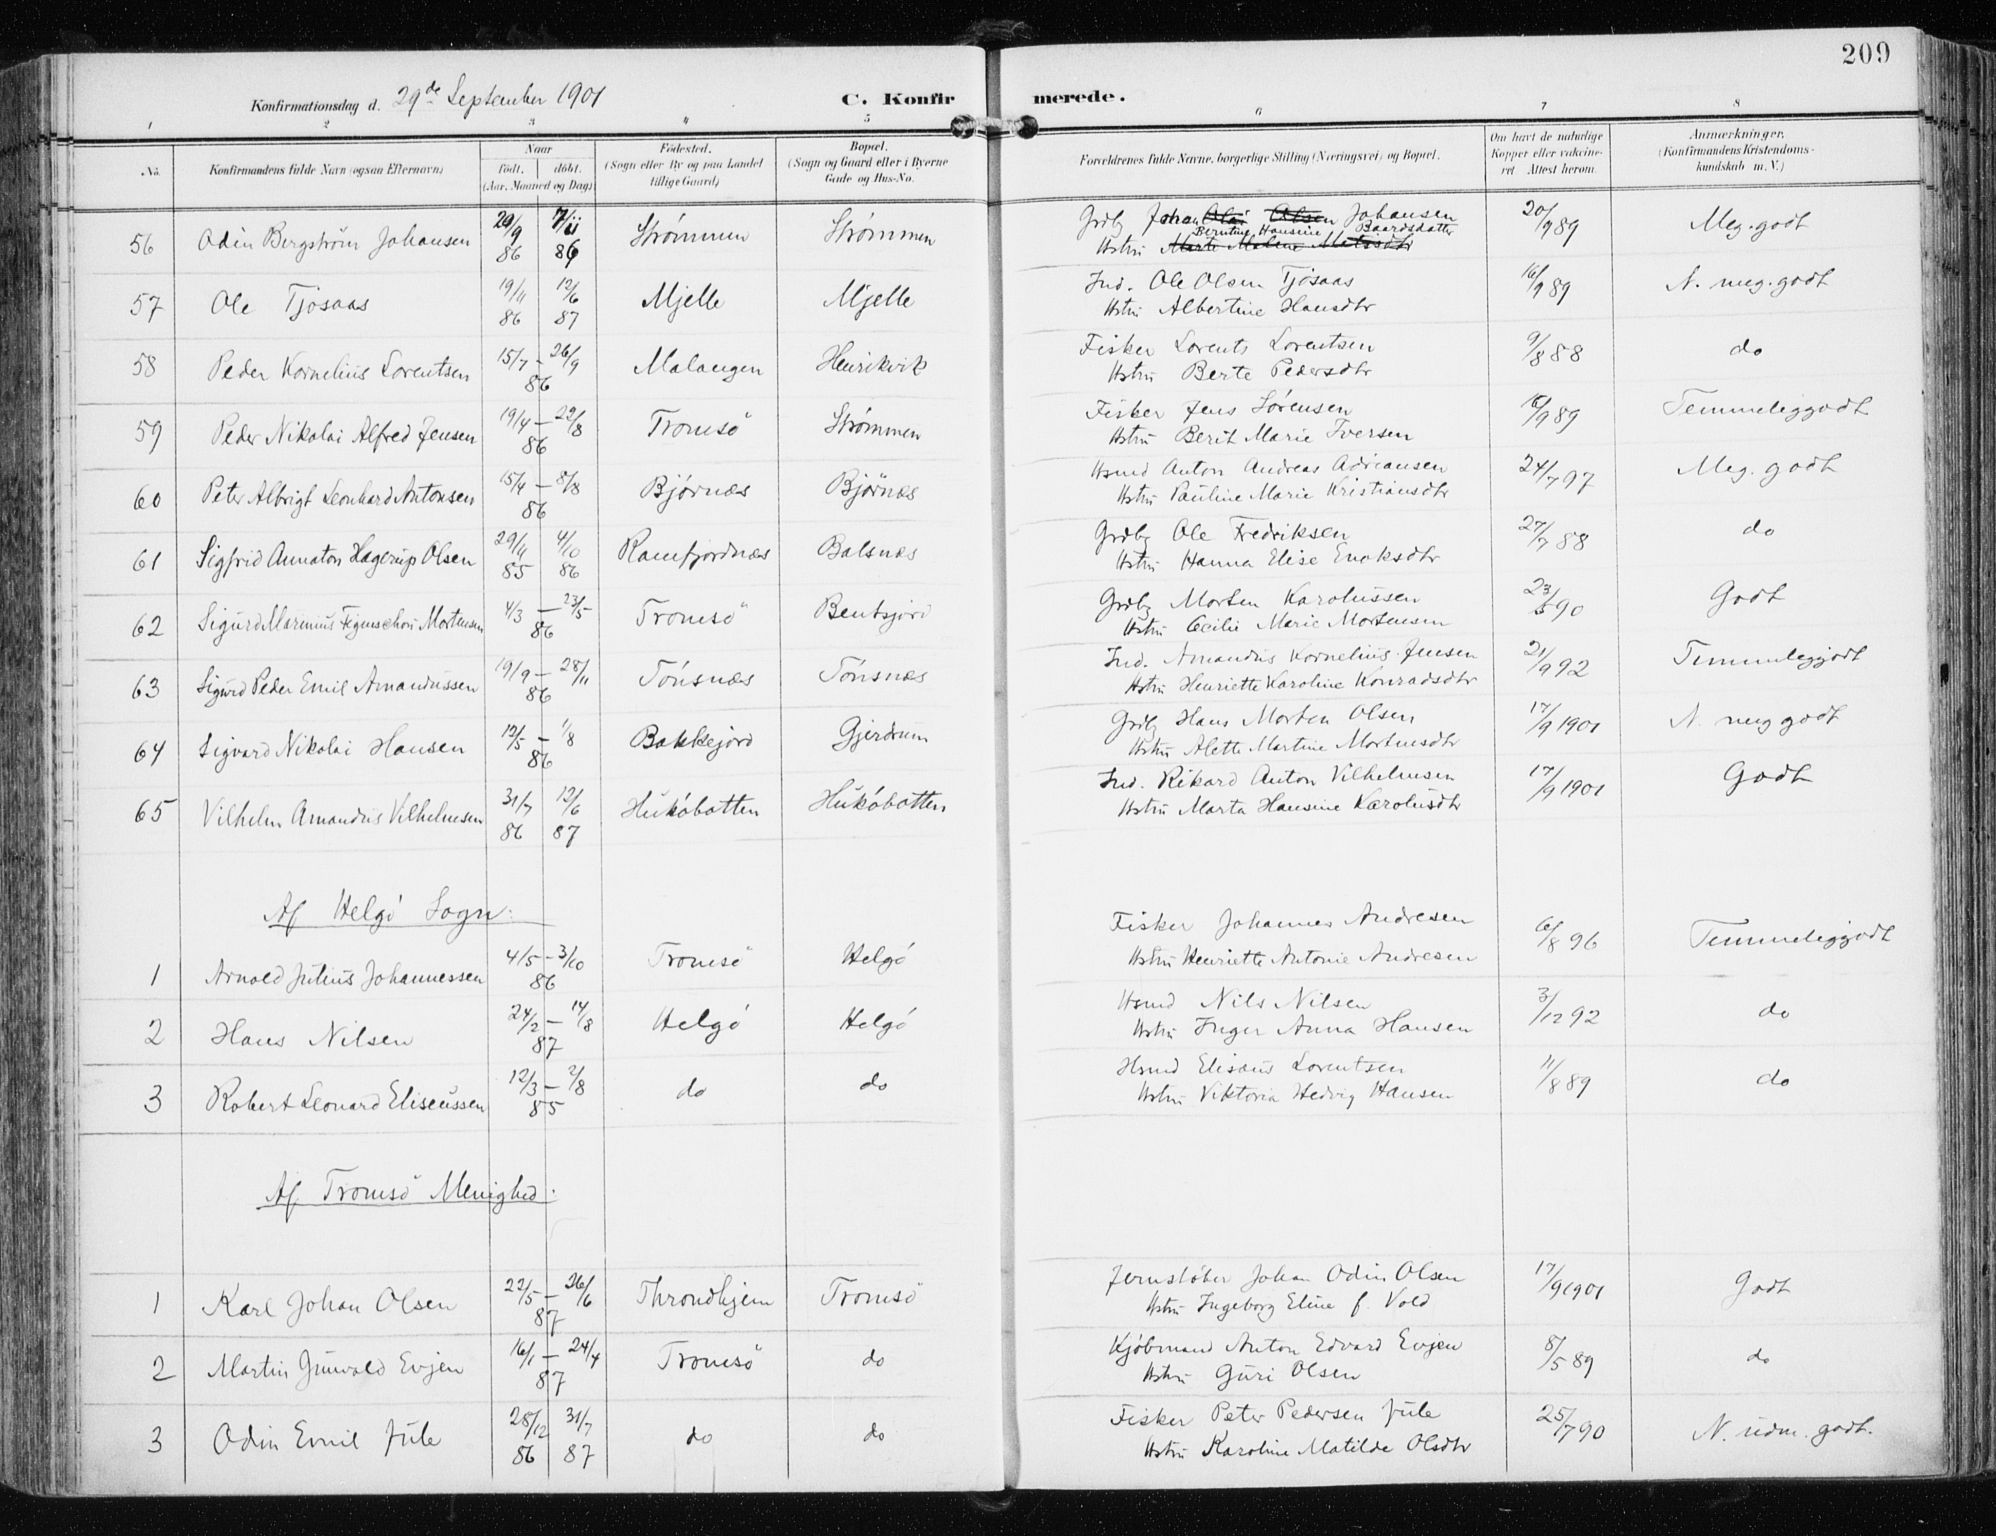 209
Konfirmationsdag d. 29de September 1901 C. Konfirmerede.
1 2 3 4 5 6 7 8
No. Konfirmandens fulde Navn (ogsaa Efternavn) Naar født. døbt. (Aar, Maaned og Dag) Fødested. (Sogn eller By og paa Landet tillige Gaard) Bopæl. (Sogn og Gaard eller i Byerne Gade og Hus-No. Forældrenes fulde Navne, borgerlige Stilling (Næringsvei) og Bopæl. Om havt de naturlige Kopper eller vakcineret Attest herom. Anmærkninger. (Konfirmandens Kristendomskundskab m. V.)
56 Odin Bergström Johansen 29/9 86 7/11 86 Strømmen Strømmen Grdbr Johan Olai Olsen Johansen 20/9 89 Meg. godt
Hstru Berntine Hansine Baardsdatter
57 Ole Tjosaas 19/11 86 12/6 87 Mjelle Mjelle Ind. Ole Olsen Tjosaas 16/9 89 N. meg. godt
Hstru Albertine Hansdtr
58 Peder Kornelius Lorentsen 15/7 – 26/9 86 Malangen Henrikvik Fisker Lorents Lorentsen 9/8 88 do
Hstru Berte Pedersdtr
59 Peder Nikolai Alfred Jensen 19/4 – 22/8 86 Tromsö Strømmen Fisker Jens Sørensen 16/9 89 Temmeliggodt
Hstru Berit Marie Iversen
60 Peter Albrigt Leonhard Antonsen 15/4 – 8/8 86 Bjørnæs Bjørnæs Hsmd Anton Andreas Adriansen 24/7 97 Meg. godt
Hstru Pauline Marie Kristiansdtr
61 Sigfrid Annaton Hagerup Olsen 29/11 85 4/10 86 Ramfjordnæs Balsnæs Grdbr Ole Fredriksen 27/7 88 do
Hstru Hanna Elise Enoksdtr
62 Sigurd Marinius Figenschou Mortensen 4/3 – 23/5 86 Tromsö Bentsjord Grdbr Morten Karolussen 23/5 90 Godt
Hstru Cecilie Marie Mortensen
63 Sigurd Peder Emil Amandussen 19/9 – 28/11 86 Tønsnæs Tønsnæs Ind. Amandus Kornelius Jensen 21/9 92 Temmeliggodt
Hstru Henriette Karoline Konradsdtr
64 Sigvard Nikolai Hansen 12/5 – 1/8 86 Bakkejord Gjerdrum Grdbr Hans Morten Olsen 17/9 1901 N. meg godt
Hstru Alette Martine Mortensdtr
65 Vilhelm Amandus Vilhelmsen 31/7 86 12/6 87 Hukøbotten Hukøbotten Ind. Rikard Anton Vilhelmsen 17/9 1901 Godt
Hstru Marta Hansine Karolusdtr
Af Helgø Sogn:
1 Arnold Julius Johannessen 4/5 – 3/10 86 Tromsö Helgø Fisker Johannes Andresen 6/8 96 Temmeliggodt
Hstru Henriette Antonie Andresen
2 Hans Nilsen 24/2 – 14/8 87 Helgø Helgø Hsmd Nils Nilsen 3/12 92 do
Hstru Inger Anna Hansen
3 Robert Leonard Eliseussen 12/3 – 2/8 85 do do Hsmd Elisæus Lorentsen 11/8 89 do
Hstru Viktoria Hedvig Hansen
Af Tromsö Menighed:
1 Karl Johan Olsen 22/5 – 26/6 87 Throndhjem Tromsö Jernstøber Johan Odin Olsen 17/9 1901 Godt
Hstru Ingeborg Eline f. Vold
2 Martin Junvald Evjen 16/1 – 24/4 87 Tromsö do Kjøbmand Anton Edvard Evjen 8/5 89 do
Hstru Guri Olsen
3 Odin Emil Jule 28/12 86 31/7 87 do do Fisker Peter Pedersen Jule 25/7 90 N. udm. godt.
Hstru Karoline Matilde Olsdtr